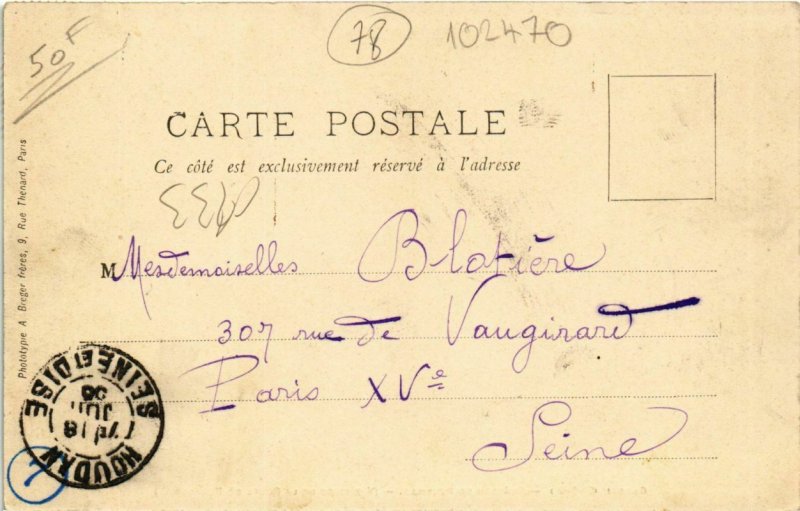 50F
78
102470
CARTE POSTALE
Ce côté est exclusivement réservé à l'adresse
Mesdemoiselles Blatière
307 rue de Vaugirard
Paris XVe
Seine
Phototypie A. Breger frères, 9, Rue Thenard, Paris
HOUDAN
18
JUIL
06
SEINE ET OISE